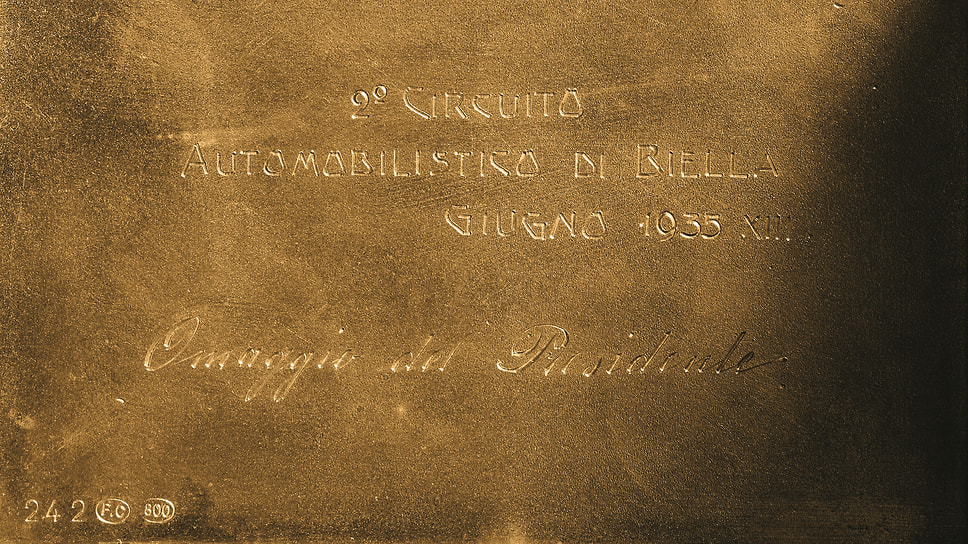 2º CIRCUITO
AUTOMOBILISTICO DI BIELLA
GIUGNO 1935 XIII
Omaggio del Presidente
242 F.C 800